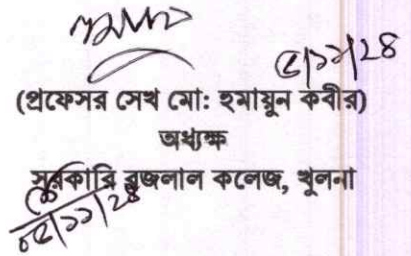 ৫/১১/২৪
(প্রফেসর সেখ মো: হুমায়ুন কবীর)
অধ্যক্ষ
সরকারি ব্রজলাল কলেজ, খুলনা
০৫/১১/২৪